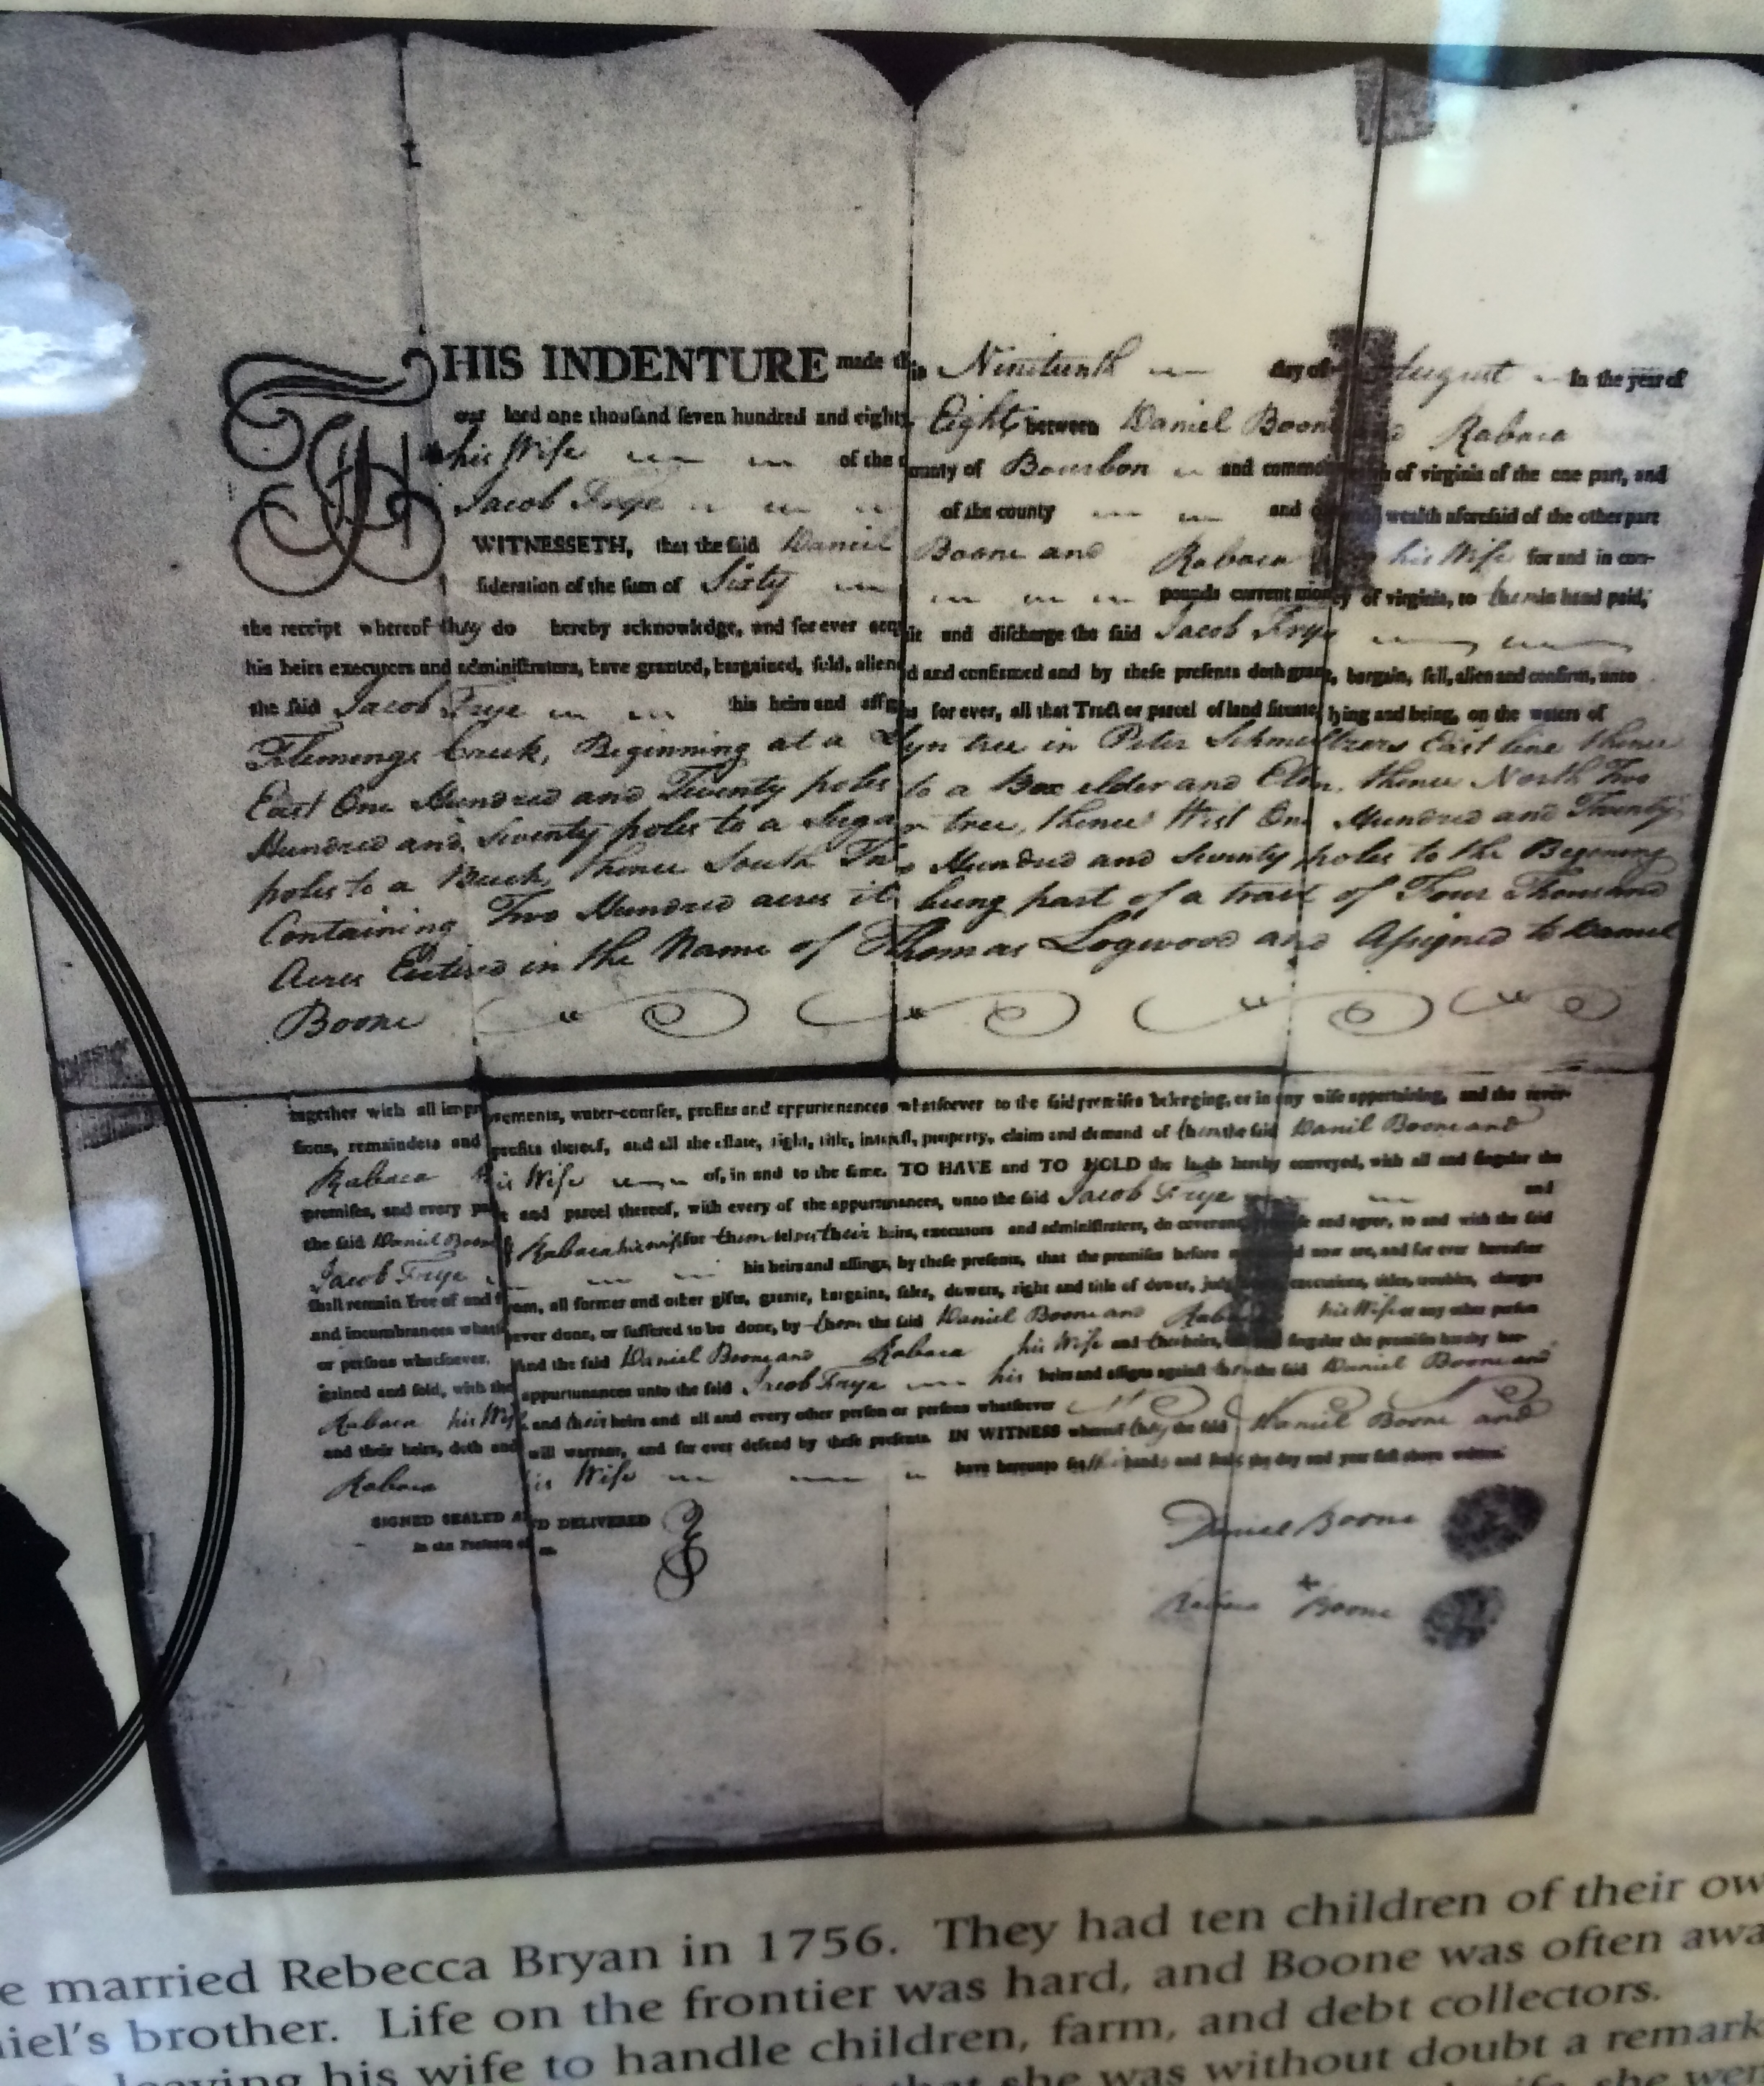 THIS INDENTURE made this Ninteenth day of August In the year of
our lord one thouſand ſeven hundred and eighty Eight between Daniel Boone and Rabaca
his Wife of the county of Bourbon and common of virginia of the one part, and
Jacob Frye of the county and wealth aforeſaid of the other part
WITNESSETH, that the ſaid Daniel Boone and Rabaca his Wife for and in con-
ſideration of the ſum of Sixty pounds current money of virginia, to them in hand paid,
the receipt whereof they do hereby acknowledge, and for ever acquit and diſcharge the ſaid Jacob Frye
his heirs executors and adminiſtrators, have granted, bargained, ſold, aliened and confirmed and by theſe preſents doth grant, bargain, ſell, alien and confirm, unto
the ſaid Jacob Frye his heirs and aſſigns for ever, all that Tract or parcel of land ſituate, lying and being, on the waters of
Flemings Creek, Beginning at a Lyn tree in Peter Schmeltzers East line thence
East One Hundred and Twenty poles to a Box elder and Elm, thence North Two
Hundred and Seventy poles to a Sugar tree, thence West One Hundred and Twenty
poles to a Beech, thence South Two Hundred and Seventy poles to the Begening
Containing Two Hundred acres it being part of a tract of Four Thousand
Acres Entered in the Name of Thomas Logwood and Aſsigned to Daniel
Boone
together with all improvements, water-courſes, profits and appurtenances whatſoever to the ſaid premiſes belonging, or in any wiſe appertaining, and the rever-
ſions, remainders and profits thereof, and all the eſtate, right, title, intereſt, property, claim and demand of them the ſaid Daniel Boone and
Rabaca his Wife of, in and to the ſame. TO HAVE and TO HOLD the lands hereby conveyed, with all and ſingular the
premiſes, and every part and parcel thereof, with every of the appurtenances, unto the ſaid Jacob Frye and
the ſaid Daniel Boone & Rabaca his wife for themſelves their heirs, executors and adminiſtrators, do covenant and agree, to and with the ſaid
Jacob Frye his heirs and aſſings, by theſe preſents, that the premiſes before now are, and for ever hereafter
ſhall remain free of and from, all former and other gifts, grants, bargains, ſales, dowers, right and title of dower, executions, titles, troubles, charges
and incumbrances whatſoever done, or ſuffered to be done, by them the ſaid Daniel Boone and Rabaca his Wife or any other perſon
or perſons whatſoever. And the ſaid Daniel Boone and Rabaca his Wife and their heirs, ſingular the premiſes hereby bar-
gained and ſold, with the appurtunances unto the ſaid Jacob Frye his heirs and aſſigns againſt them the ſaid Daniel Boone and
Rabaca his Wife and their heirs and all and every other perſon or perſons whatſoever
and their heirs, doth and will warrant, and for ever defend by theſe preſents. IN WITNESS whereof they the ſaid Daniel Boone and
Rabaca his Wife have hereunto ſet their hands and ſeals the day and year firſt above written.
SIGNED SEALED AND DELIVERED
In the Preſence of
Daniel Boone
+
Rabaca Boone
e married Rebecca Bryan in 1756. They had ten children of their ow
niel's brother. Life on the frontier was hard, and Boone was often awa
leaving his wife to handle children, farm, and debt collectors.
that she was without doubt a remark
she wer